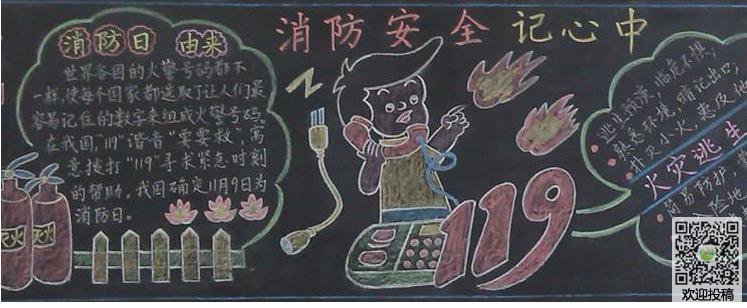 消防安全记心中
消防日 由来
世界各国的火警号码都不
一样,使每个国家都选取了让人们最
容易记住的数字来组成火警号码.
在我国,"119"谐音"要要救",寓
意拨打"119"寻求紧急时刻
的帮助。我国确定11月9日为
消防日。
灭火
119
逃生预演,临危不惧.
熟悉环境,暗记出口,
扑灭小火,惠及他
火灾逃生
简易防护,
险地
欢迎投稿